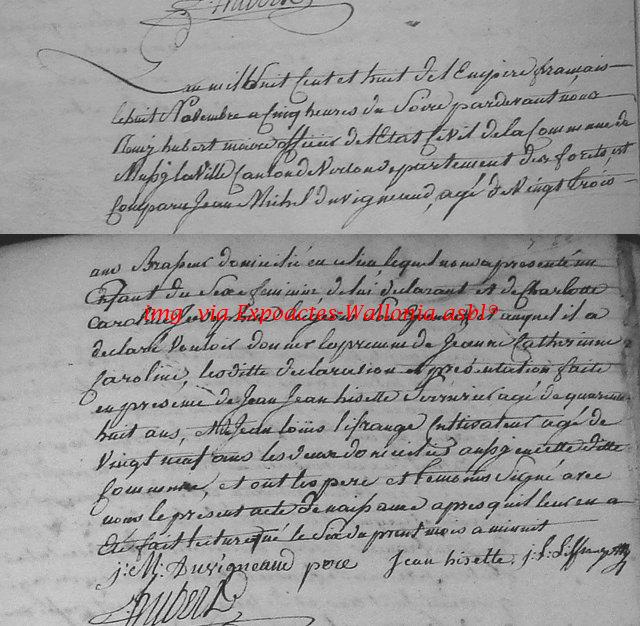 hubert
L'an mil huit Cent et huit de l'Empire français
le huit Novembre a Cinq heures du Soire pardevant nous
hubert maire officier de l'Etat Civil de la Commune de
Mussy la Ville Canton de Virton departement des forets, est
Comparu Jean Michel Duvigneaud, agé de Vingt trois
ans Brasseur domicilié en ce lieu lequel nous a presenté un
Enfant du Sexe feminine de lui declarant et de Charlotte
img via Expoactes-Wallonia asbl®
Caroline auquel il a
declaré Vouloir donner le prenom de Jeanne Catherinne
Caroline, lesditte declaration et présentation faite
en presence de Jean Jean hisette Serrurier agé de quarante
huit ans, et Jean Louis lifrange Cultivateur agé de
Vingt neuf ans les deux domiciliés aussy en cette ditte
Commune, et ont les pere et temoins Signé avec
nous le present acte de naissance apres qu'il leur en a
été fait lecture né le Six du prnt mois a minuit
j: M: Duvigneaud pere Jean hisette. j: l: lifrange
hubert